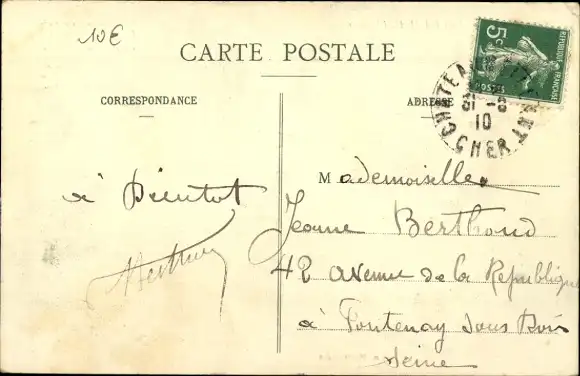 10€
CARTE POSTALE
CORRESPONDANCE
ADRESSE
5c
REPUBLIQUE FRANÇAISE
POSTES
31-8
10
CHER
à bientot
Mademoiselle
Jeanne Berthoud
42 avenue de la Republique
à Fontenay sous Bois
Seine